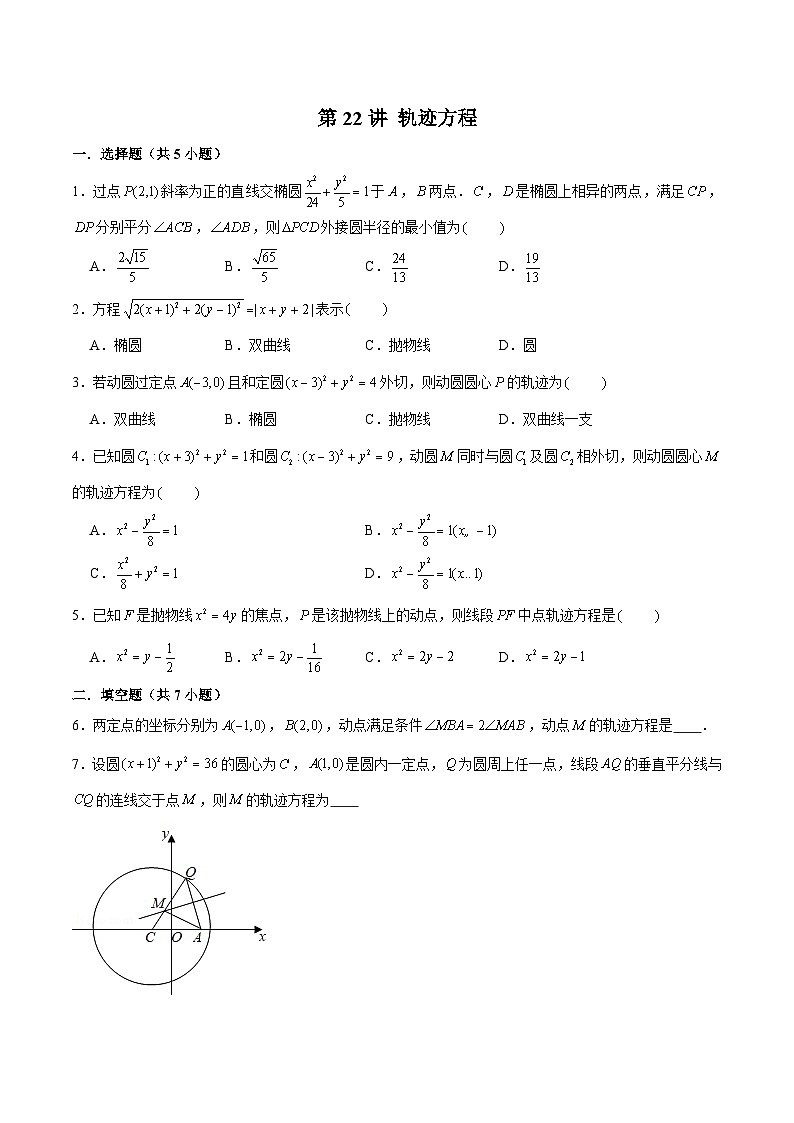 第22讲 轨迹方程
一．选择题（共5小题）
1．过点P(2,1)斜率为正的直线交椭圆x²/24+y²/5=1于A，B两点．C，D是椭圆上相异的两点，满足CP，
DP分别平分∠ACB，∠ADB，则ΔPCD外接圆半径的最小值为( )
A．2√15/5 B．√65/5 C．24/13 D．19/13
2．方程√(2(x+1)²+2(y−1)²)=|x+y+2|表示( )
A．椭圆 B．双曲线 C．抛物线 D．圆
3．若动圆过定点A(−3,0)且和定圆(x−3)²+y²=4外切，则动圆圆心P的轨迹为( )
A．双曲线 B．椭圆 C．抛物线 D．双曲线一支
4．已知圆C₁:(x+3)²+y²=1和圆C₂:(x−3)²+y²=9，动圆M同时与圆C₁及圆C₂相外切，则动圆圆心M
的轨迹方程为( )
A．x²−y²/8=1 B．x²−y²/8=1(x„ −1)
C．x²/8+y²=1 D．x²−y²/8=1(x..1)
5．已知F是抛物线x²=4y的焦点，P是该抛物线上的动点，则线段PF中点轨迹方程是( )
A．x²=y−1/2 B．x²=2y−1/16 C．x²=2y−2 D．x²=2y−1
二．填空题（共7小题）
6．两定点的坐标分别为A(−1,0)，B(2,0)，动点满足条件∠MBA=2∠MAB，动点M的轨迹方程是____．
7．设圆(x+1)²+y²=36的圆心为C，A(1,0)是圆内一定点，Q为圆周上任一点，线段AQ的垂直平分线与
CQ的连线交于点M，则M的轨迹方程为____
y
Q
M
C O A x